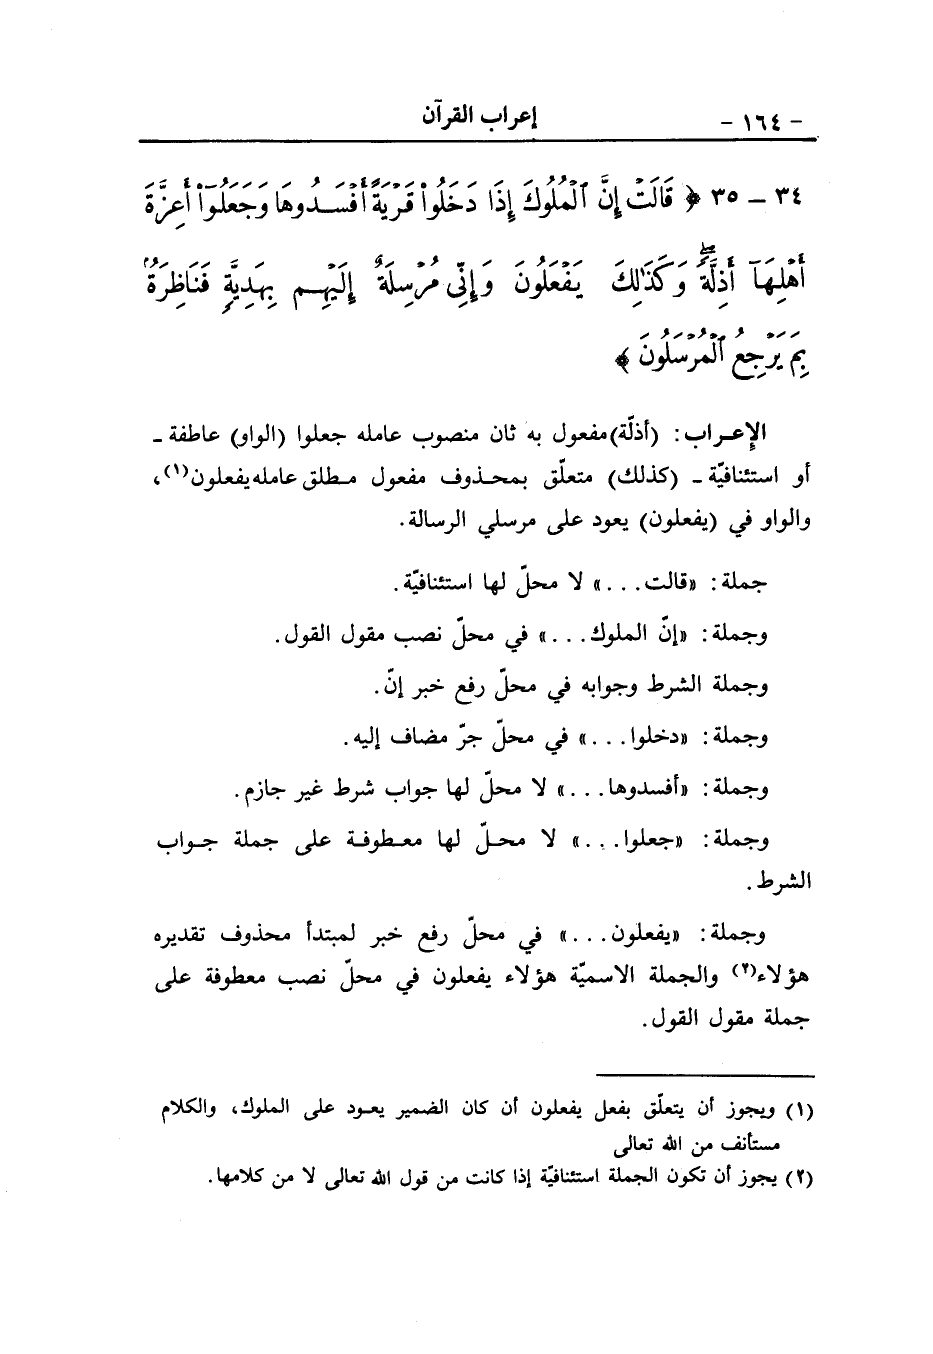 - ١٦٤ - إعراب القرآن
٣٤ - ٣٥ ﴿ قَالَتْ إِنَّ ٱلْمُلُوكَ إِذَا دَخَلُوا۟ قَرْيَةً أَفْسَدُوهَا وَجَعَلُوٓا۟ أَعِزَّةَ
أَهْلِهَآ أَذِلَّةً ۖ وَكَذَٰلِكَ يَفْعَلُونَ وَإِنِّى مُرْسِلَةٌ إِلَيْهِم بِهَدِيَّةٍ فَنَاظِرَةٌۢ
بِمَ يَرْجِعُ ٱلْمُرْسَلُونَ ﴾
الإعـراب: (أذلّة)مفعول به ثان منصوب عامله جعلوا (الواو) عاطفة -
أو استئنافيّة - (كذلك) متعلّق بمحذوف مفعول مطلق عامله يفعلون(١)،
والواو في (يفعلون) يعود على مرسلي الرسالة.
جملة: «قالت. . .» لا محلّ لها استئنافيّة.
وجملة: «إنّ الملوك. . .» في محلّ نصب مقول القول.
وجملة الشرط وجوابه في محلّ رفع خبر إنّ.
وجملة: «دخلوا. . .» في محلّ جرّ مضاف إليه.
وجملة: «أفسدوها. . .» لا محلّ لها جواب شرط غير جازم.
وجملة: «جعلوا. . .» لا محلّ لها معطوفة على جملة جواب
الشرط.
وجملة: «يفعلون. . .» في محلّ رفع خبر لمبتدأ محذوف تقديره
هؤلاء(٢) والجملة الاسميّة هؤلاء يفعلون في محلّ نصب معطوفة على
جملة مقول القول.
(١) ويجوز أن يتعلّق بفعل يفعلون أن كان الضمير يعود على الملوك، والكلام
مستأنف من الله تعالى
(٢) يجوز أن تكون الجملة استئنافيّة إذا كانت من قول الله تعالى لا من كلامها.